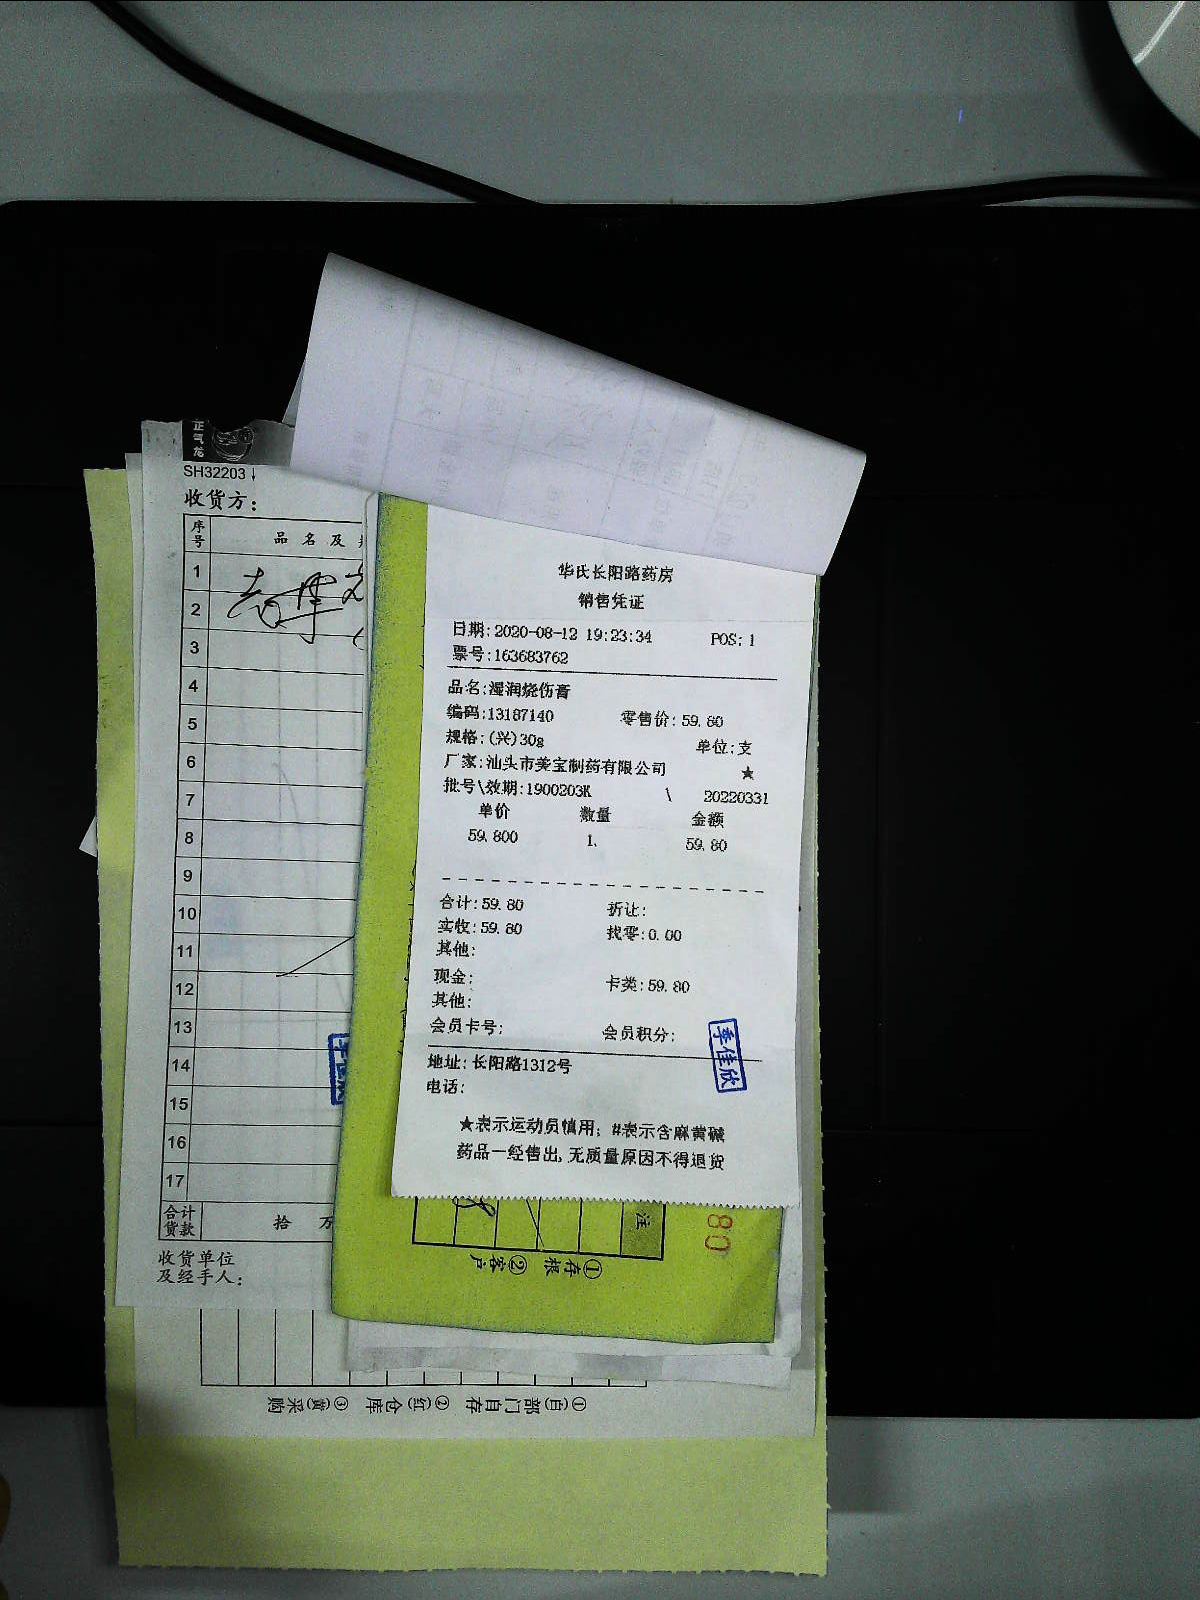 正气龙
SH32203↓
收货方：
序号 品名及
1
2
3
4
5
6
7
8
9
10
11
12
13
14
15
16
17
合计货款 拾 万
收货单位
及经手人：
华氏长阳路药房
销售凭证
日期:2020-08-12 19:23:34 POS:1
票号:163683762
品名:湿润烧伤膏
编码:13187140 零售价:59.80
规格:(兴)30g 单位:支
厂家:汕头市美宝制药有限公司 ★
批号\效期:1900203K \ 20220331
单价 数量 金额
59.800 1. 59.80
合计:59.80 折让:
实收:59.80 找零:0.00
其他:
现金: 卡类:59.80
其他:
会员卡号: 会员积分:
季佳欣
地址:长阳路1312号
电话:
★表示运动员慎用; #表示含麻黄碱
药品一经售出,无质量原因不得退货
注
80
①存根 ②客户
①(白)部门自存 ②(红)仓库 ③(黄)采购